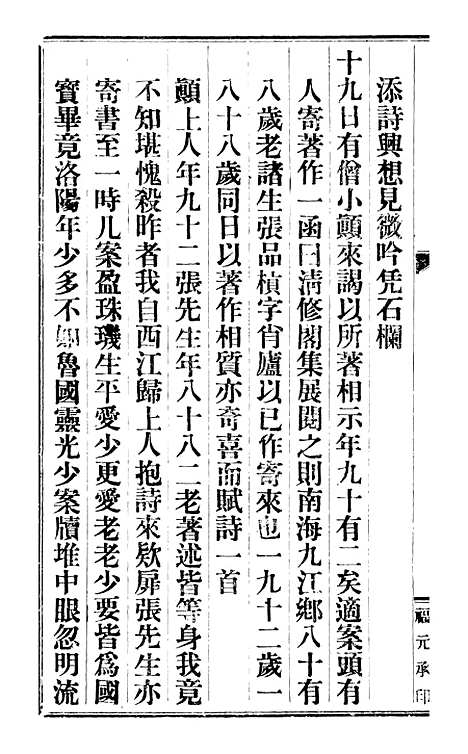 添詩興想見微吟凭石欄
十九日有僧小顛來謁以所著相示年九十有二矣適案頭有
人寄著作一函曰清修閣集展閱之則南海九江鄉八十有
八歲老諸生張品楨字肖廬以已作寄來也一九十二歲一
八十八歲同日以著作相質亦奇喜而賦詩一首
顚上人年九十二張先生年八十八二老著述皆等身我竟
不知堪愧殺昨者我自西江歸上人抱詩來欵扉張先生亦
寄書至一時几案盈珠璣生平愛少更愛老老少要皆爲國
寳畢竟洛陽年少多不如魯國靈光少案牘堆中眼忽明流
福元承印